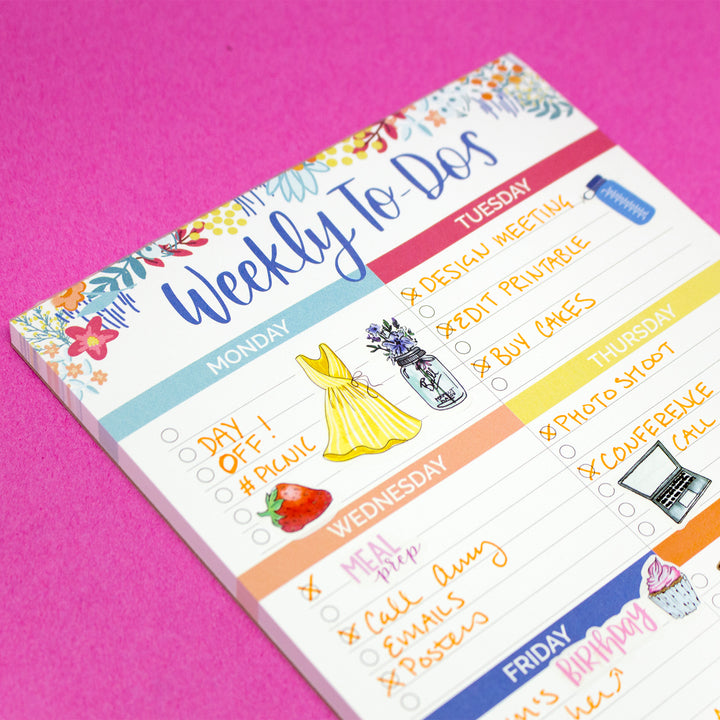 Weekly To-Dos
MONDAY
DAY
OFF!
#PICNIC
TUESDAY
DESIGN MEETING
EDIT PRINTABLE
BUY CAKES
WEDNESDAY
MEAL
prep
Call Amy
EMAILS
Posters
THURSDAY
PHOTO SHOOT
CONFERENCE
CALL
FRIDAY
BIRTHDAY